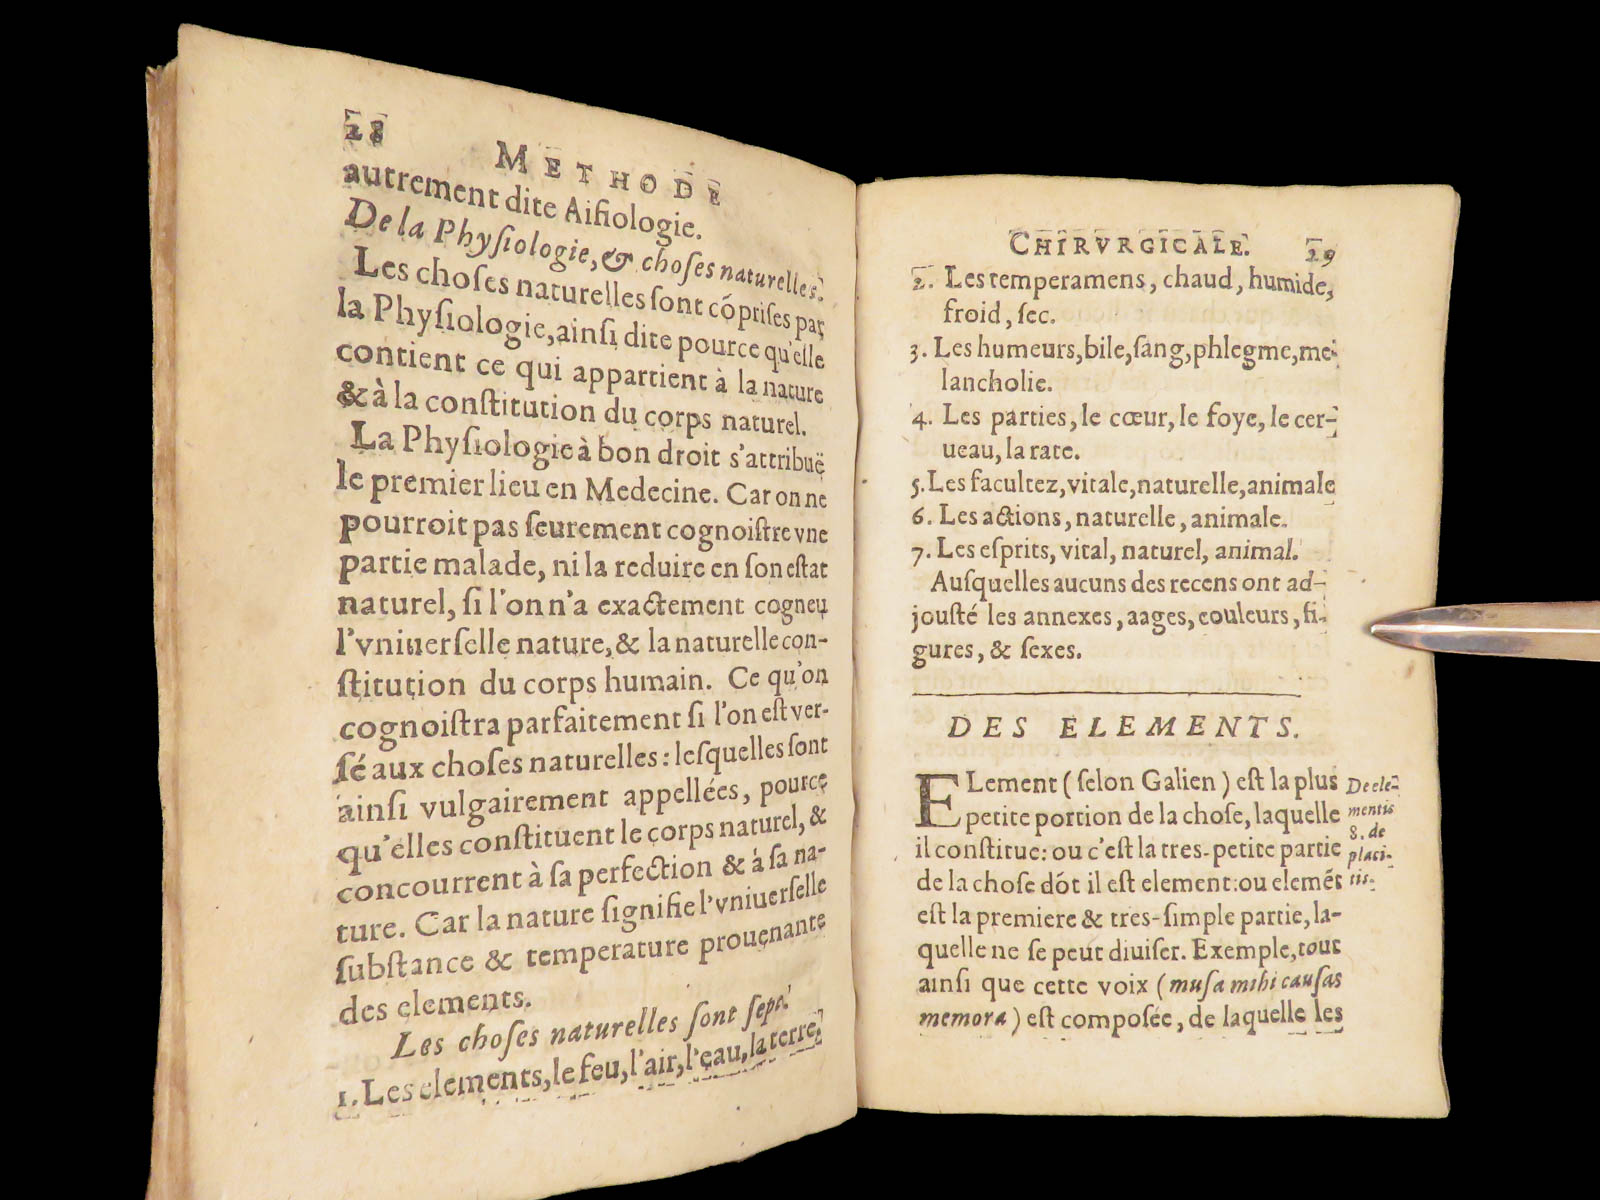 28
METHODE
autrement dite Aifiologie.
De la Phyſiologie, & choſes naturelles.
Les choſes naturelles ſont cōpriſes par
la Phyſiologie, ainſi dite pource qu'elle
contient ce qui appartient à la nature
& à la conſtitution du corps naturel.
La Phyſiologie à bon droit s'attribuë
le premier lieu en Medecine. Car on ne
pourroit pas ſeurement cognoiſtre vne
partie malade, ni la reduire en ſon eſtat
naturel, ſi l'on n'a exactement cogneu
l'vniuerſelle nature, & la naturelle con-
ſtitution du corps humain. Ce qu'on
cognoiſtra parfaitement ſi l'on eſt ver-
ſé aux choſes naturelles : leſquelles ſont
ainſi vulgairement appellées, pource
qu'elles conſtituent le corps naturel, &
concourrent à ſa perfection & à ſa na-
ture. Car la nature ſignifie l'vniuerſelle
ſubſtance & temperature prouenante
des elements.
Les choſes naturelles ſont ſept.
1. Les elements, le feu, l'air, l'eau, la terre,
CHIRVRGICALE.
29
2. Les temperamens, chaud, humide,
froid, ſec.
3. Les humeurs, bile, ſang, phlegme, me-
lancholie.
4. Les parties, le cœur, le foye, le cer-
ueau, la rate.
5. Les facultez, vitale, naturelle, animale
6. Les actions, naturelle, animale.
7. Les eſprits, vital, naturel, animal.
Auſquelles aucuns des recens ont ad-
jouſté les annexes, aages, couleurs, fi-
gures, & ſexes.
DES ELEMENTS.
ELement (ſelon Galien) eſt la plus
petite portion de la choſe, laquelle
il conſtitue: ou c'eſt la tres-petite partie
de la choſe dōt il eſt element: ou elemēt
eſt la premiere & tres-ſimple partie, la-
quelle ne ſe peut diuiſer. Exemple, tout
ainſi que cette voix (muſa mihi cauſas
memora) eſt compoſée, de laquelle les
De ele-
mentis
8. de
placi-
tis.